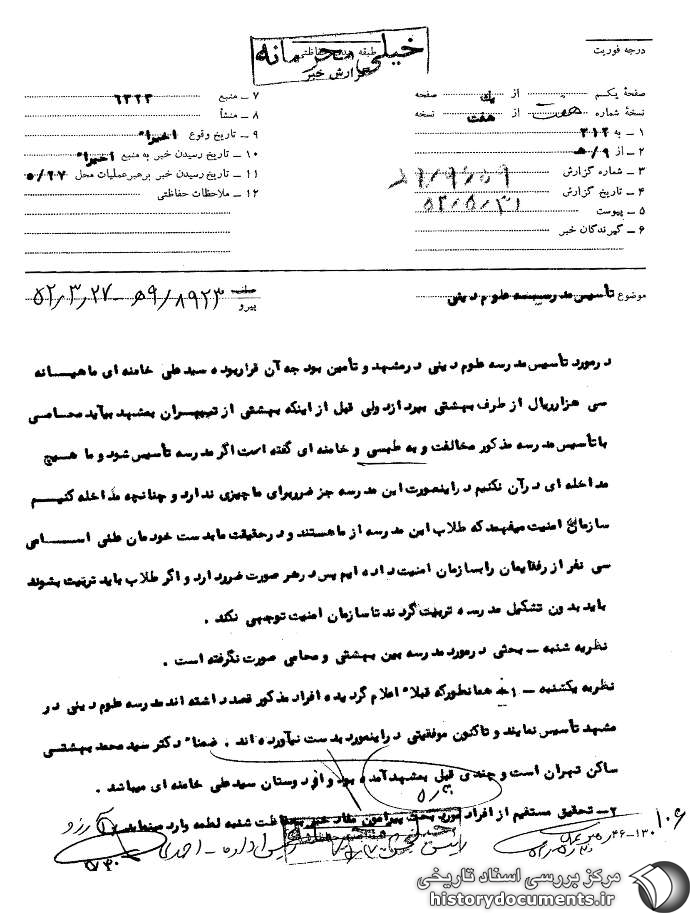 خیلی محرمانه
طبقه بندی حفاظتی
گزارش خبر
درجه فوریت
صفحهٔ یکم از یک صفحه
نسخهٔ شماره هفت از هفت نسخه
۱ – به ۳۱۲
۲ – از ۹/ه
۳ – شماره گزارش
۴ – تاریخ گزارش ۵۲/۵/۳۱
۵ – پیوست
۶ – گیرندگان خبر
۷ – منبع ۶۳۲۳
۸ – منشأ
۹ – تاریخ وقوع اخیرا"
۱۰ – تاریخ رسیدن خبر به منبع اخیرا"
۱۱ – تاریخ رسیدن خبر برهبر عملیات محل ۵/۲۷
۱۲ – ملاحظات حفاظتی
موضوع تأسیس مدرسه علوم دینی
پیرو ۸۹۲۳/۹ه – ۵۲/۳/۲۷
درمورد تأسیس مدرسه علوم دینی درمشهد و تأمین بودجه آن قراربوده سیدعلی خامنه ای ماهیانه
سی هزارریال از طرف بهشتی بپردازد ولی قبل از اینکه بهشتی از تهران بمشهد بیاید محامی
باتأسیس مدرسه مذکور مخالفت و به طبسی و خامنه ای گفته است اگر مدرسه تأسیس شود و ما هیچ
مداخله ای درآن نکنیم دراینصورت این مدرسه جز ضرربرای ماچیزی ندارد و چنانچه مداخله کنیم
سازمان امنیت میفهمد که طلاب این مدرسه از ماهستند و درحقیقت مابدست خودمان علنی اسامی
سی نفر از رفقایمان رابسازمان امنیت داده ایم پس درهر صورت ضرردارد و اگر طلاب باید تربیت بشوند
باید بدون تشکیل مدرسه تربیت گردند تاسازمان امنیت توجهی نکند .
نظریه شنبه – بحثی درمورد مدرسه بین بهشتی و محامی صورت نگرفته است .
نظریه یکشنبه – ۱– همانطورکه قبلا" اعلام گردیده افراد مذکور قصد داشته اند مدرسه علوم دینی در
مشهد تأسیس نمایند و تاکنون موفقیتی دراینمورد بدست نیاورده اند . ضمنا" دکتر سید محمد بهشتی
ساکن تهران است و چندی قبل بمشهد آمده بود و از دوستان سیدعلی خامنه ای میباشد .
۲– تحقیق مستقیم از افراد مورد بحث پیرامون مفاد خبر بحفاظت شنبه لطمه وارد مینماید.
آرزو
رئیس اداره – احمدی
رئیس بخش
۱۰۶
مرکز بررسی اسناد تاریخی
historydocuments.ir